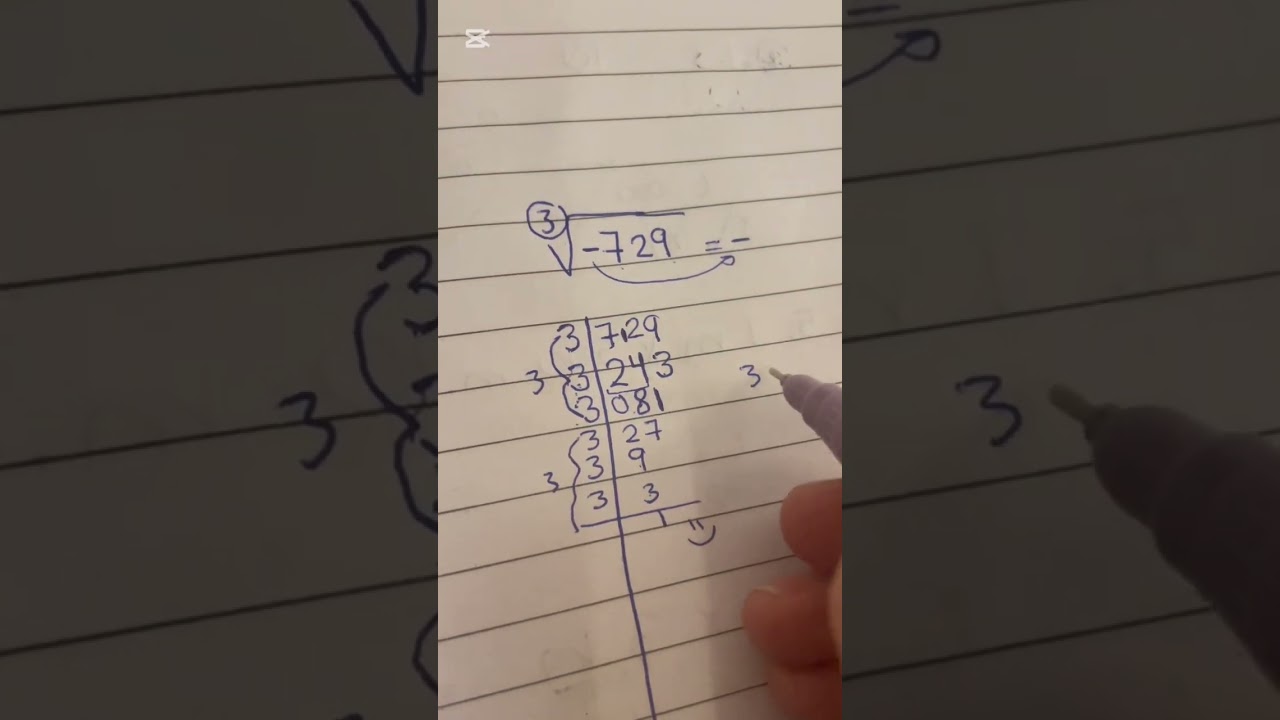 ∛-729 = -
3 | 729
3 3 | 243
3 | 081
3 | 27
3 3 | 9
3 | 3
1
3